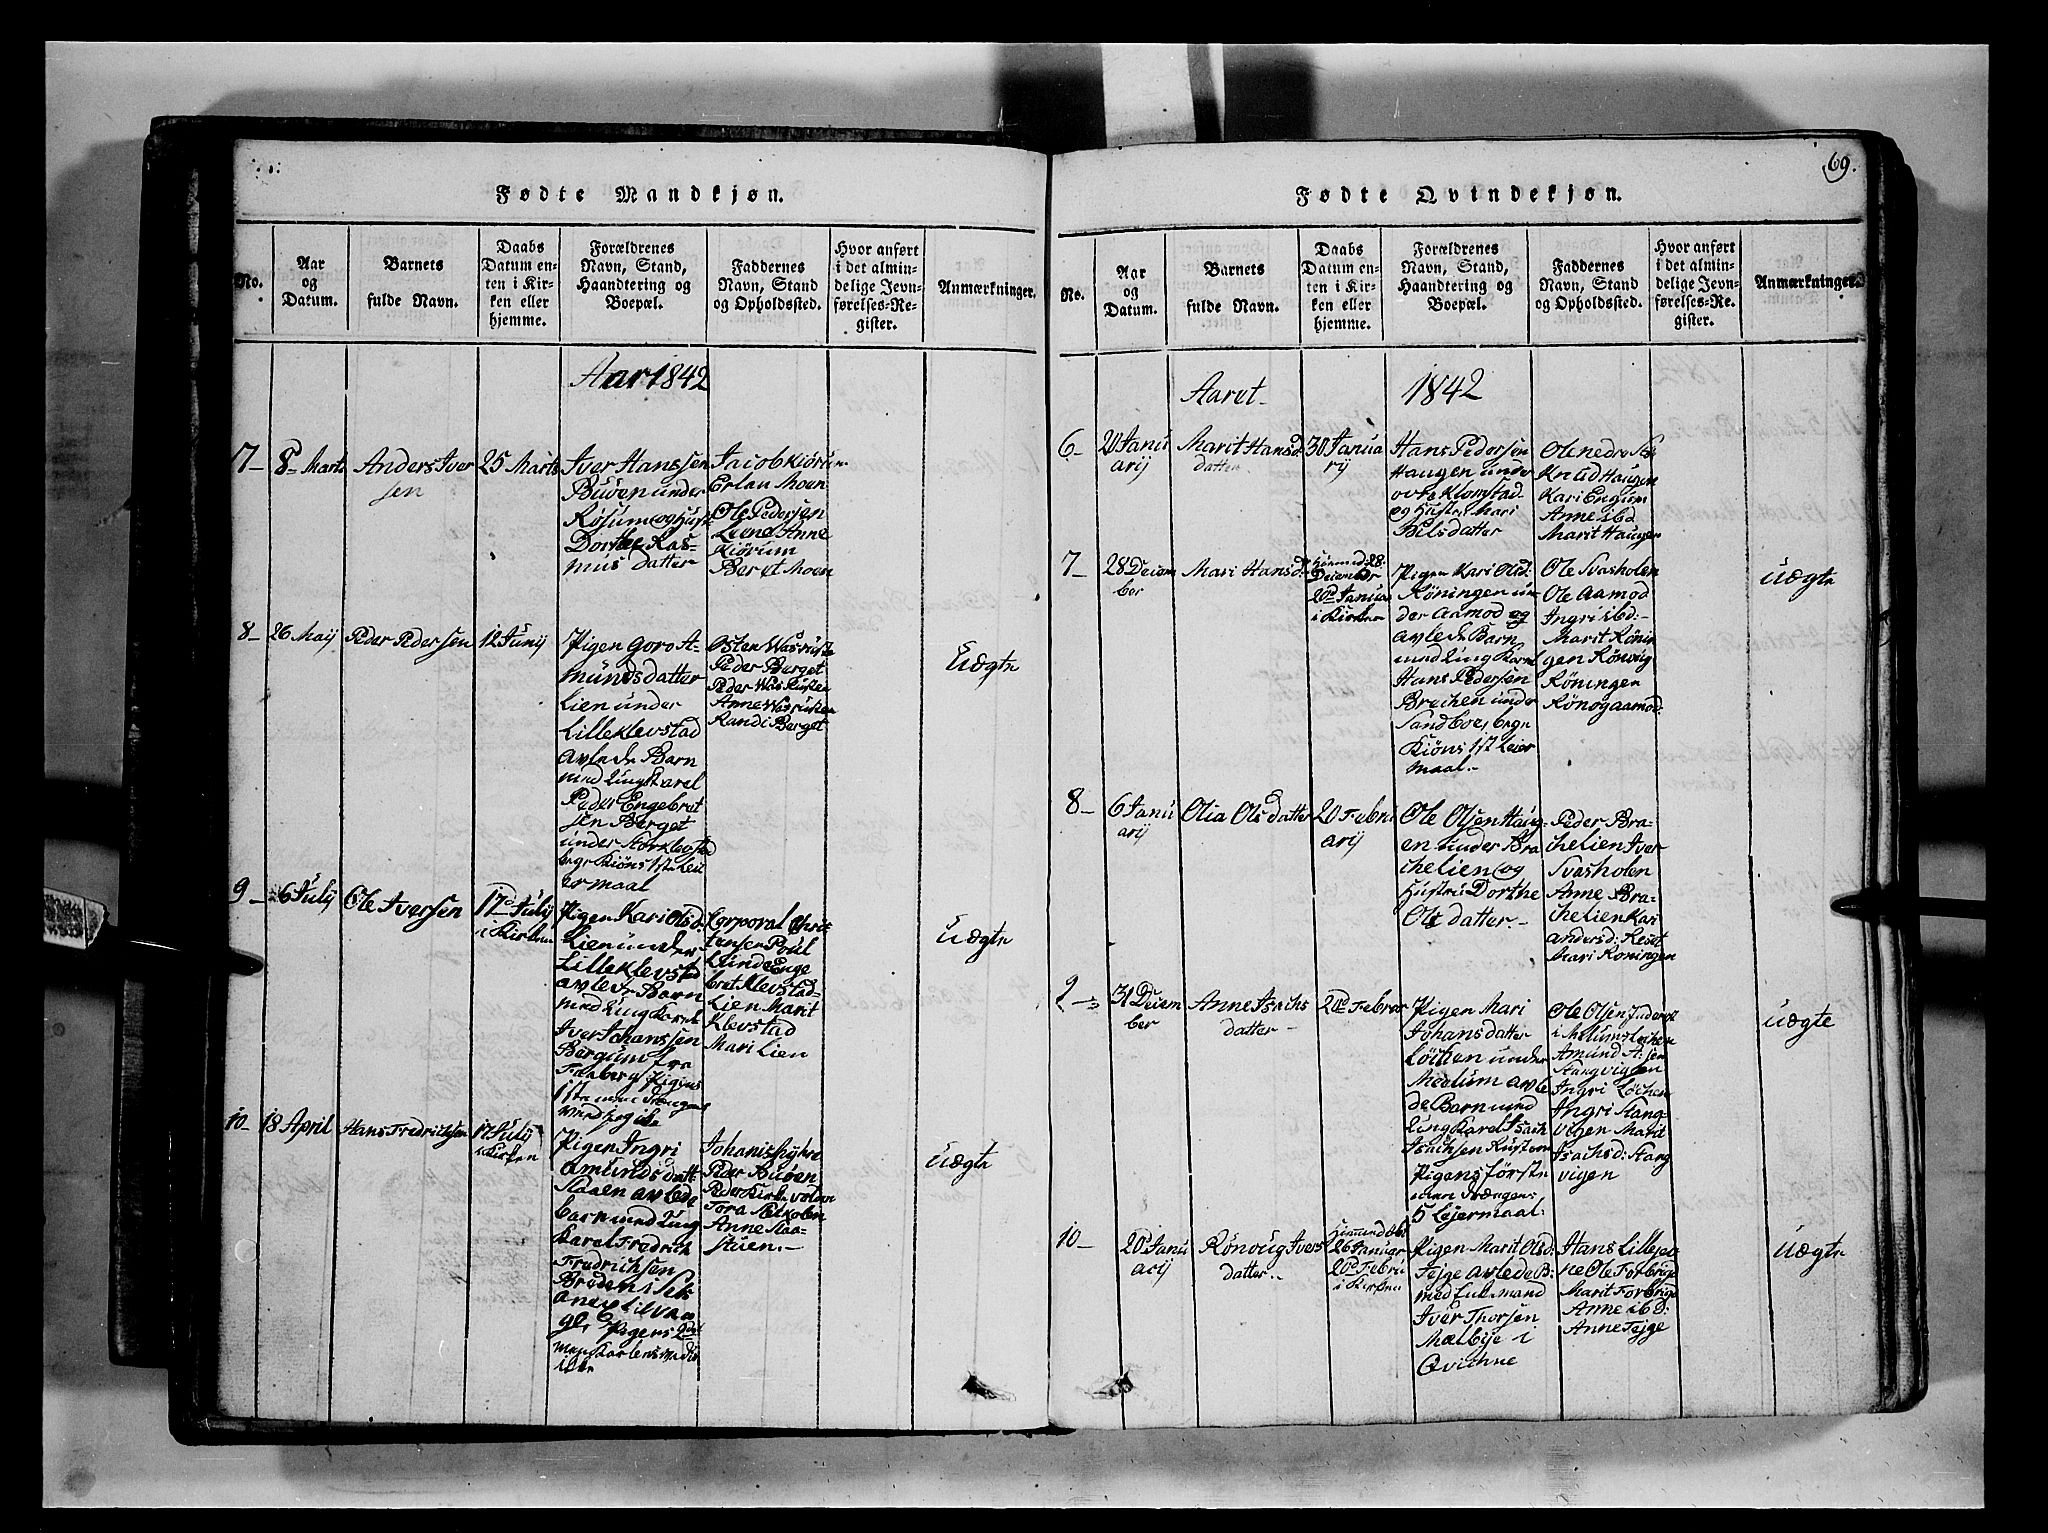 69.
Fødte Mandkjøn.
No.
Aar
og
Datum.
Barnets
fulde Navn.
Daabs
Datum en-
ten i Kir-
ken eller
hjemme.
Forældrenes
Navn, Stand,
Haandtering og
Boepæl.
Faddernes
Navn, Stand
og Opholdssted.
Hvor anført
i det almin-
delige Jevn-
førelses-Re-
gister.
Anmærkninger.
Aar 1842
7-
8- Marts
Anders Iver
sen
25 Marts
Iver Hanssen
Buven under
Rosum og Hust
Dorthe Ras-
mus datter
Jacob Kiörum
Erlan Moen
Ole Pedersen
Lund Anne
Kiörum
Beret Moen
8-
26 Maij
Peder Pedersen
12 Junij
Pigen Goro A-
munds datter
Lien under
Lilleklevstad
avlede Barn
med Ungkarel
Peder Engebret
sen Berget
under Storklevstad
begge Kiöns 1ste Lei
ermaal
Osten Wasrusten
Peder Berget
Peder Wasrusten
Anne Wasrusten
Randi Berget
Uægte
9-
6 Julij
Ole Iversen
17de Julij
i Kirken
Pigen Kari Olsd:
Lien under
Lilleklevstad
avlede Barn
med Ungkarel
Iver Johanssen
Bergum fra
Faaberg Pigens
1ste men Drengens
Corporal Christ
tensen Poul
Lunde Enge
bret Klevstad-
Lien Marit
Klevstad
Mari Lien
Uægte
10-
18 April
Hans Fredrichsen
17 Julij
i Kirken
Pigen Ingri
Amunds datt:
Slaaen avlede
barn med Ung
karel Fredrich
Fredrichsen
Breden i Sels
annex til Vaa
ge, Pigens 2det
men Karlens
ikke
Johanis
Peder Buven
Peder Kirkevolden
Tora Selkolen
Anne Slaa-
stuen.-
Uægte
Fødte Qvindekjøn.
No.
Aar
og
Datum.
Barnets
fulde Navn.
Daabs
Datum en-
ten i Kir-
ken eller
hjemme.
Forældrenes
Navn, Stand,
Haandtering og
Boepæl.
Faddernes
Navn, Stand
og Opholdssted.
Hvor anført
i det almin-
delige Jevn-
førelses-Re-
gister.
Anmærkninger.
Aaret 1842
6-
2 Janu
arij
Marit Hans
datter
30 Janua
rij
Hans Pedersen
Haugen under
ovre Klomstad
og Hustru Mari
Pelsdatter
Ole nedre
Knud Haugen
Kari Engum
Anne ibd
Marit Haugen
7-
28 Decem
ber
Mari Hansd:
Hiemmed 28
December
20de Janua
i Kirken
Pigen Kari Olsd:
Röningen un
der Aamod og
avlede Barn
med Ungkarel
Hans Pedersen
Brechen under
Sandboe, begge
Kiöns 1ste Leier
maal.-
Ole Svasholen
Ole Aamod
Ingri ibd:-
Marit Rönin
gen Rönvug
Röningen
Rönog aamod:
Uægte
8-
6 Janu
arij
Olia Ols datter
20 Febru
arij
Ole Olsen Haug-
en under Bra
chelien og
Hustru Dorthe
Ols datter.-
Peder Bra-
chelien Iver
Svasholen
Anne Bra-
chelien Kari
andersd: Reset
Mari Roningen
9-
31 Decem
ber
Anne Isachs
datter-
20de Februar
Pigen Mari
Johans datter
Löchen under
Meelum avle
de Barn med
Ungkarel Isach
Isachsen Rusten
Pigens förste
men Drengens
5 Lejermaal.
Ole Olsen
i Melums Löchen
Amund A:sen
Stangvigen
Ingri Löchen
Ingri Stang-
vigen Marit
Isachsd: Stang
vigen
Uægte
10-
20de Janu
arij
Rönvug Ivers
datter.-
Hiemmed
26 Januar
20de Febru
i Kirken
Pigen Marit Olsd:
Tejge avlede B:
med Enkemand
Iver Thorsen
Mælbye i
Qvichne
Hans Lillejor
ne Ole Forbrige
Marit Forbrige
Anne ibd:
Anne Tejge
Uægte